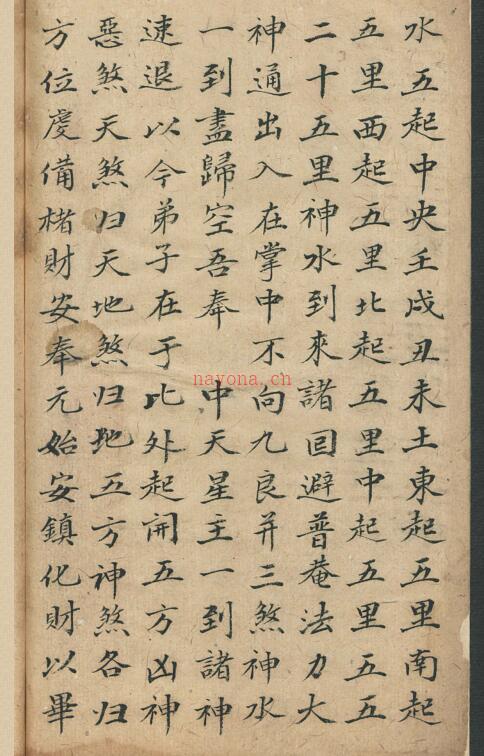 水五起中央壬戌丑未土東起五里南起
五里西起五里北起五里中起五里五五
二十五里神水到來諸回避普菴法力大
神通出入在掌中不向九良并三煞神水
一到盡歸空吾奉 中天星主一到諸神
速退以今弟子在于此外起開五方凶神
惡煞天煞归天地煞归地五方神煞各归
方位虔備楮財安奉元始安鎮化財以畢
nayona.cn